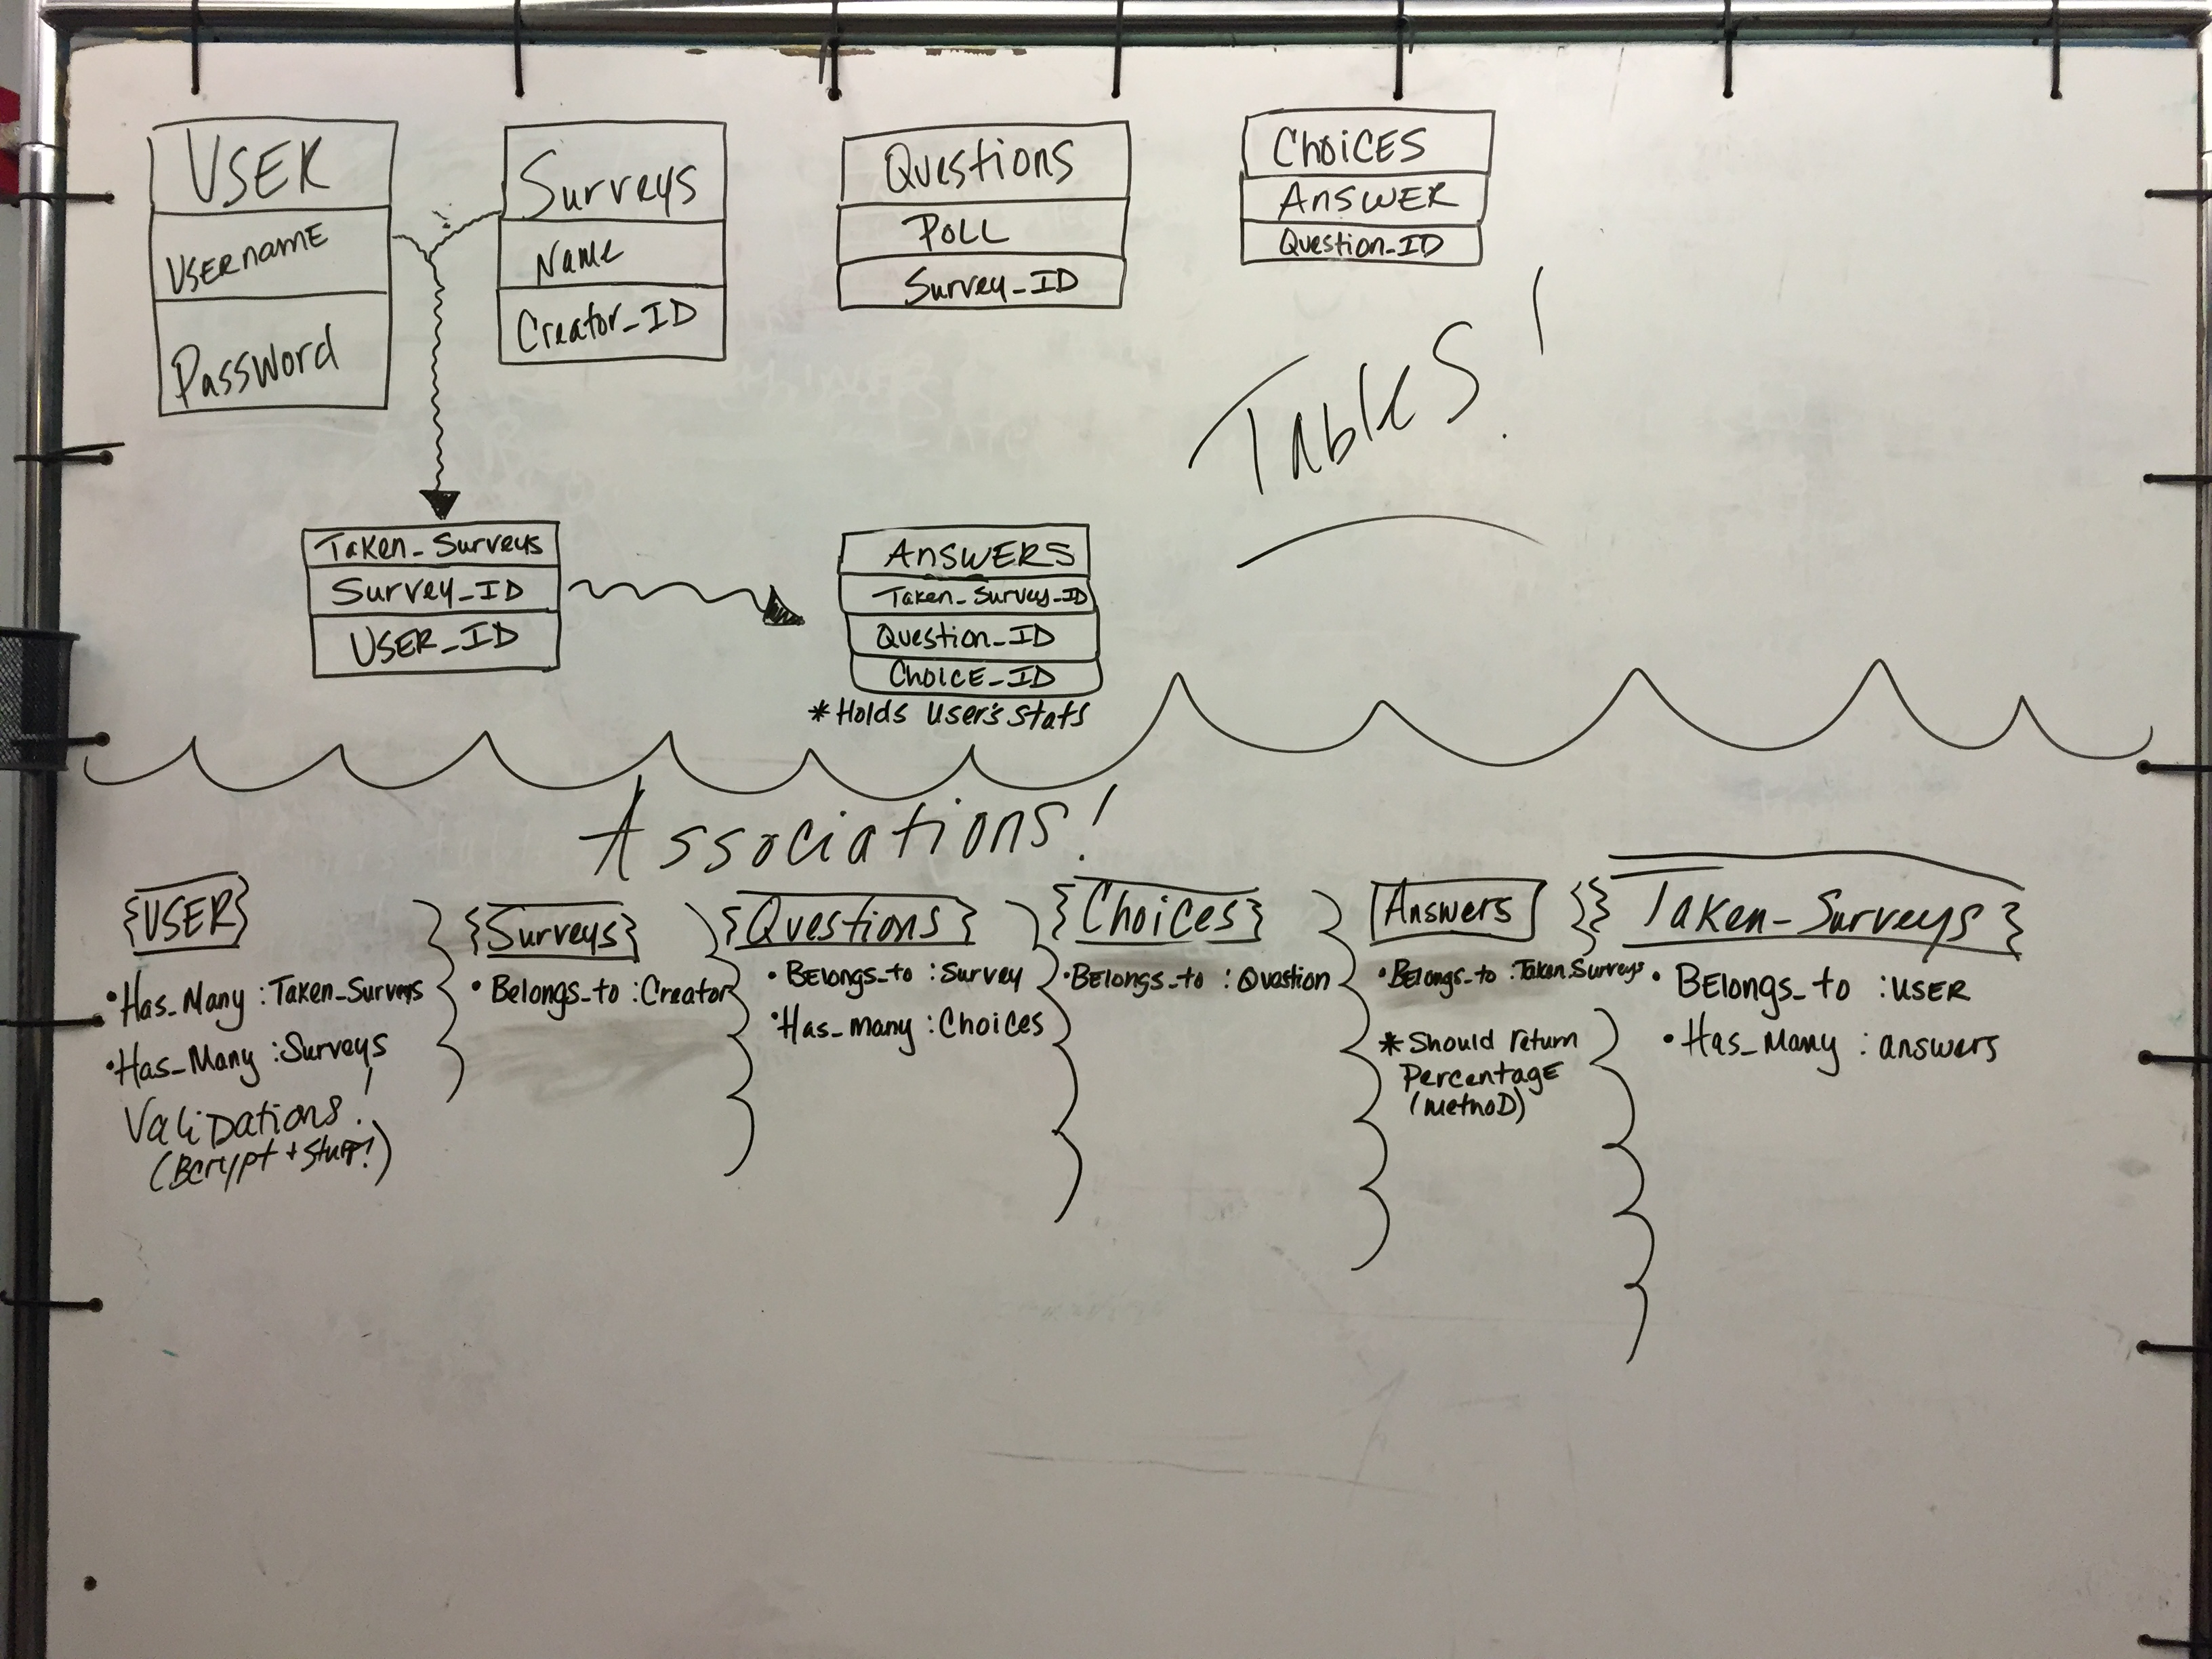 USER
Username
Password
Surveys
Name
Creator_ID
Questions
Poll
Survey_ID
Choices
Answer
Question_ID
Tables!
Taken_Surveys
Survey_ID
User_ID
Answers
Taken_Survey_ID
Question_ID
Choice_ID
*Holds User's Stats
Associations!
{USER}
•Has_Many :Taken_Surveys
•Has_Many :Surveys
Validations!
(Bcrypt + Stuff!)
{Surveys}
•Belongs_to :Creator
{Questions}
•Belongs_to :Survey
•Has_many :Choices
{Choices}
•Belongs_to :Question
[Answers]
•Belongs_to :Taken_Surveys
*Should return
Percentage
(method)
{Taken_Surveys}
•Belongs_to :User
•Has_Many :answers